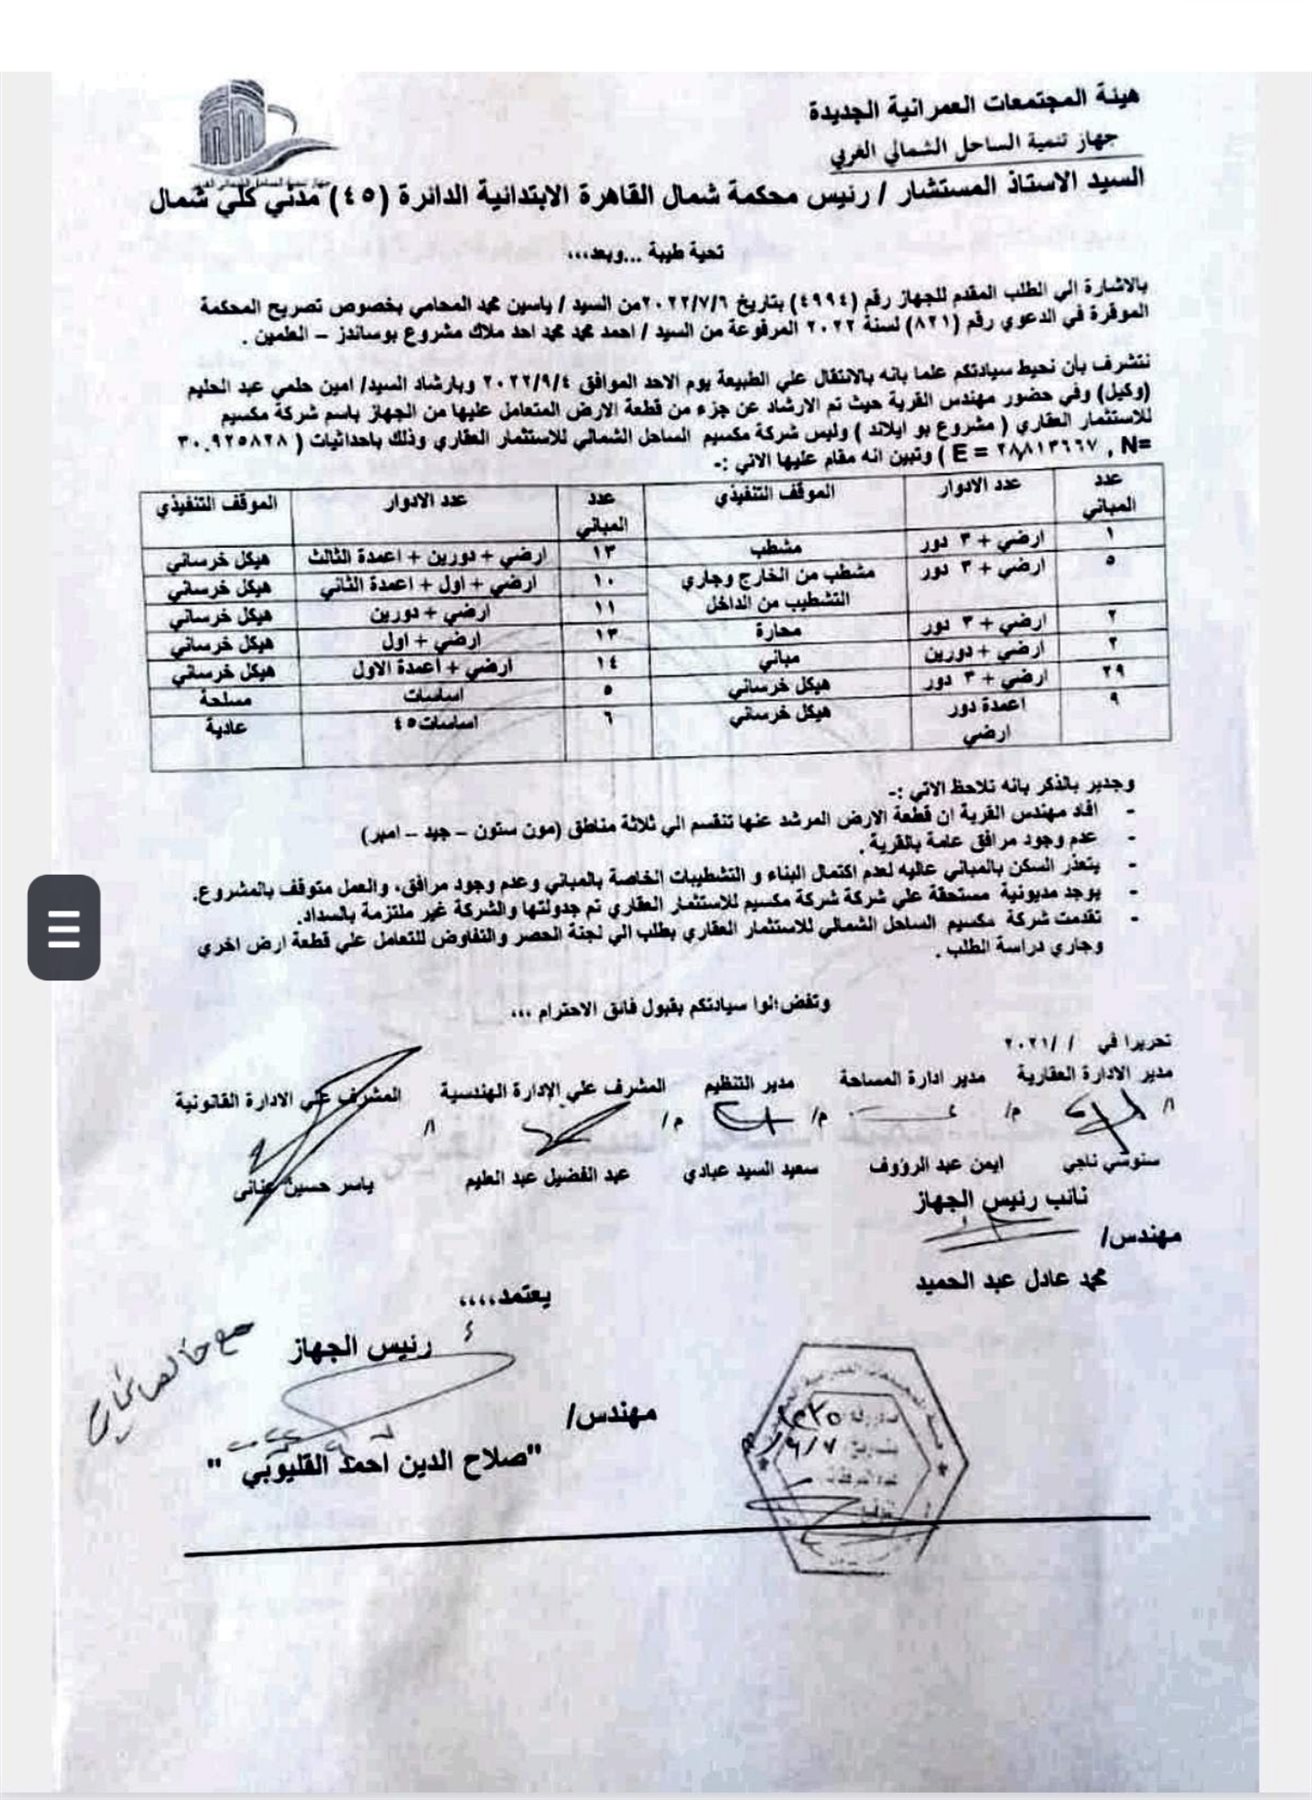 هيئة المجتمعات العمرانية الجديدة
جهاز تنمية الساحل الشمالي الغربي
السيد الاستاذ المستشار / رئيس محكمة شمال القاهرة الابتدائية الدائرة (٤٥) مدني كلي شمال
تحية طيبة ...وبعد،،،
بالاشارة الي الطلب المقدم للجهاز رقم (٤٩٩٤) بتاريخ ٢٠٢٢/٧/٦من السيد / ياسين محمد المحامي بخصوص تصريح المحكمة
الموقرة في الدعوي رقم (٨٢١) لسنة ٢٠٢٢ المرفوعة من السيد / احمد محمد محمد احد ملاك مشروع بوساندز – العلمين .
نتشرف بأن نحيط سيادتكم علما بانه بالانتقال علي الطبيعة يوم الاحد الموافق ٢٠٢٢/٩/٤ وبارشاد السيد/ امين حلمي عبد الحليم
(وكيل) وفي حضور مهندس القرية حيث تم الارشاد عن جزء من قطعة الارض المتعامل عليها من الجهاز باسم شركة مكسيم
للاستثمار العقاري ( مشروع بو ايلاند ) وليس شركة مكسيم الساحل الشمالي للاستثمار العقاري وذلك باحداثيات ( ٣٠.٩٢٥٨٢٨
=E = ٢٨٫٨١٣٦٦٧ , N ) وتبين انه مقام عليها الاتي :-
عدد المباني | عدد الادوار | الموقف التنفيذي | عدد المباني | عدد الادوار | الموقف التنفيذي
١ | ارضي + ٣ دور | مشطب | ١٣ | ارضي + دورين + اعمدة الثالث | هيكل خرساني
٥ | ارضي + ٣ دور | مشطب من الخارج وجاري التشطيب من الداخل | ١٠ | ارضي + اول + اعمدة الثاني | هيكل خرساني
١١ | ارضي + دورين | هيكل خرساني
٢ | ارضي + ٣ دور | محارة | ١٣ | ارضي + اول | هيكل خرساني
٢ | ارضي + دورين | مباني | ١٤ | ارضي + اعمدة الاول | هيكل خرساني
٢٩ | ارضي + ٣ دور | هيكل خرساني | ٥ | اساسات | مسلحة
٩ | اعمدة دور ارضي | هيكل خرساني | ٦ | اساسات٤٥ | عادية
وجدير بالذكر بانه تلاحظ الاتي :-
- افاد مهندس القرية ان قطعة الارض المرشد عنها تنقسم الي ثلاثة مناطق (مون ستون – جيد – امبر)
- عدم وجود مرافق عامة بالقرية .
- يتعذر السكن بالمباني عاليه لعدم اكتمال البناء و التشطيبات الخاصة بالمباني وعدم وجود مرافق، والعمل متوقف بالمشروع.
- يوجد مديونية مستحقة علي شركة شركة مكسيم للاستثمار العقاري تم جدولتها والشركة غير ملتزمة بالسداد.
- تقدمت شركة مكسيم الساحل الشمالي للاستثمار العقاري بطلب الي لجنة الحصر والتفاوض للتعامل علي قطعة ارض اخري
وجاري دراسة الطلب .
وتفضلوا سيادتكم بقبول فائق الاحترام ،،،
تحريرا في / /٢٠٢١
مدير الادارة العقارية مدير ادارة المساحة مدير التنظيم المشرف علي الإدارة الهندسية المشرف علي الادارة القانونية
ا/ م/ م/ م/ ا/
سنوسي ناجي ايمن عبد الرؤوف سعيد السيد عبادي عبد الفضيل عبد العليم ياسر حسين عناني
نائب رئيس الجهاز
مهندس/
محمد عادل عبد الحميد
يعتمد،،،،
رئيس الجهاز
مهندس/
"صلاح الدين احمد القليوبي "